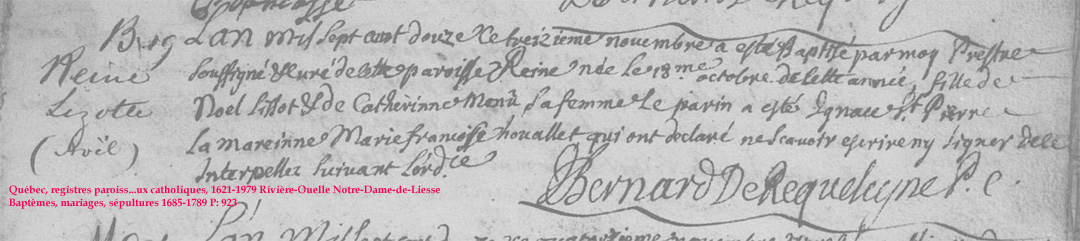 B. 19 L'an mil sept cent douze le treizieme novembre a esté Baptisé par moy Prestre
Reine soussigné & curé de cette paroisse Reine née le 18.me octobre de cette année, fille de
Lizotte Noel Lissot & de Catherinne Menü sa femme Le parin a este Ignace St. Pierre
(Noël) La mareinne Marie francoise houallet qui ont declaré ne scavoir escrire ny signer de ce
Interpellez suivant l'ord.ce
Bernard De Requeleyne P. C.
Québec, registres paroiss...ux catholiques, 1621-1979 Rivière-Ouelle Notre-Dame-de-Liesse
Baptèmes, mariages, sépultures 1685-1789 P: 923
L'an mil sept cent